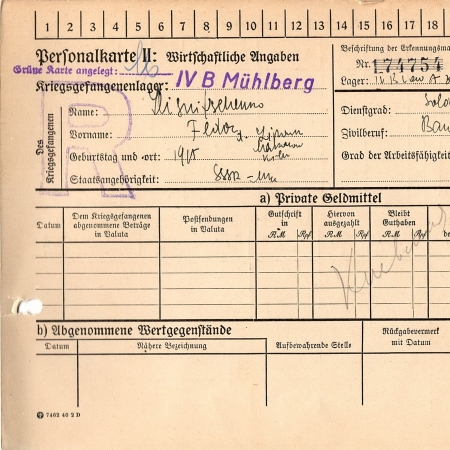 1 2 3 4 5 6 7 8 9 10 11 12 13 14 15 16 17 18
Personalkarte II: Wirtschaftliche Angaben
Beschriftung der Erkennungsma
Grüne Karte angelegt:
Nr. 174754
Kriegsgefangenenlager: IV B Mühlberg
Lager: IV B
Des Kriegsgefangenen
R
Name:
Dienstgrad: Solda
Vorname: Fedor
Zivilberuf: Bau
Geburtstag und -ort: 1918
Grad der Arbeitsfähigkeit
Staatsangehörigkeit: SSSR
a) Private Geldmittel
Datum
Dem Kriegsgefangenen abgenommene Beträge in Valuta
Postsendungen in Valuta
Gutschrift in RM Rpf
Hiervon ausgezahlt RM Rpf
Bleibt Guthaben RM Rpf
de
b) Abgenommene Wertgegenstände
Datum
Nähere Bezeichnung
Aufbewahrende Stelle
Rückgabevermerk mit Datum
7462 40 2 D